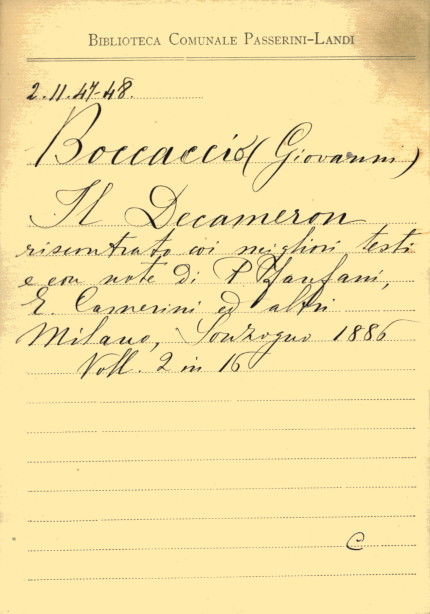 BIBLIOTECA COMUNALE PASSERINI-LANDI
2.II.47-48.
Boccaccio (Giovanni)
Il Decameron
riscontrato coi migliori testi
e con note di P. Fanfani,
E. Camerini ed altri
Milano, Sonzogno 1886
Voll. 2 in 16
C